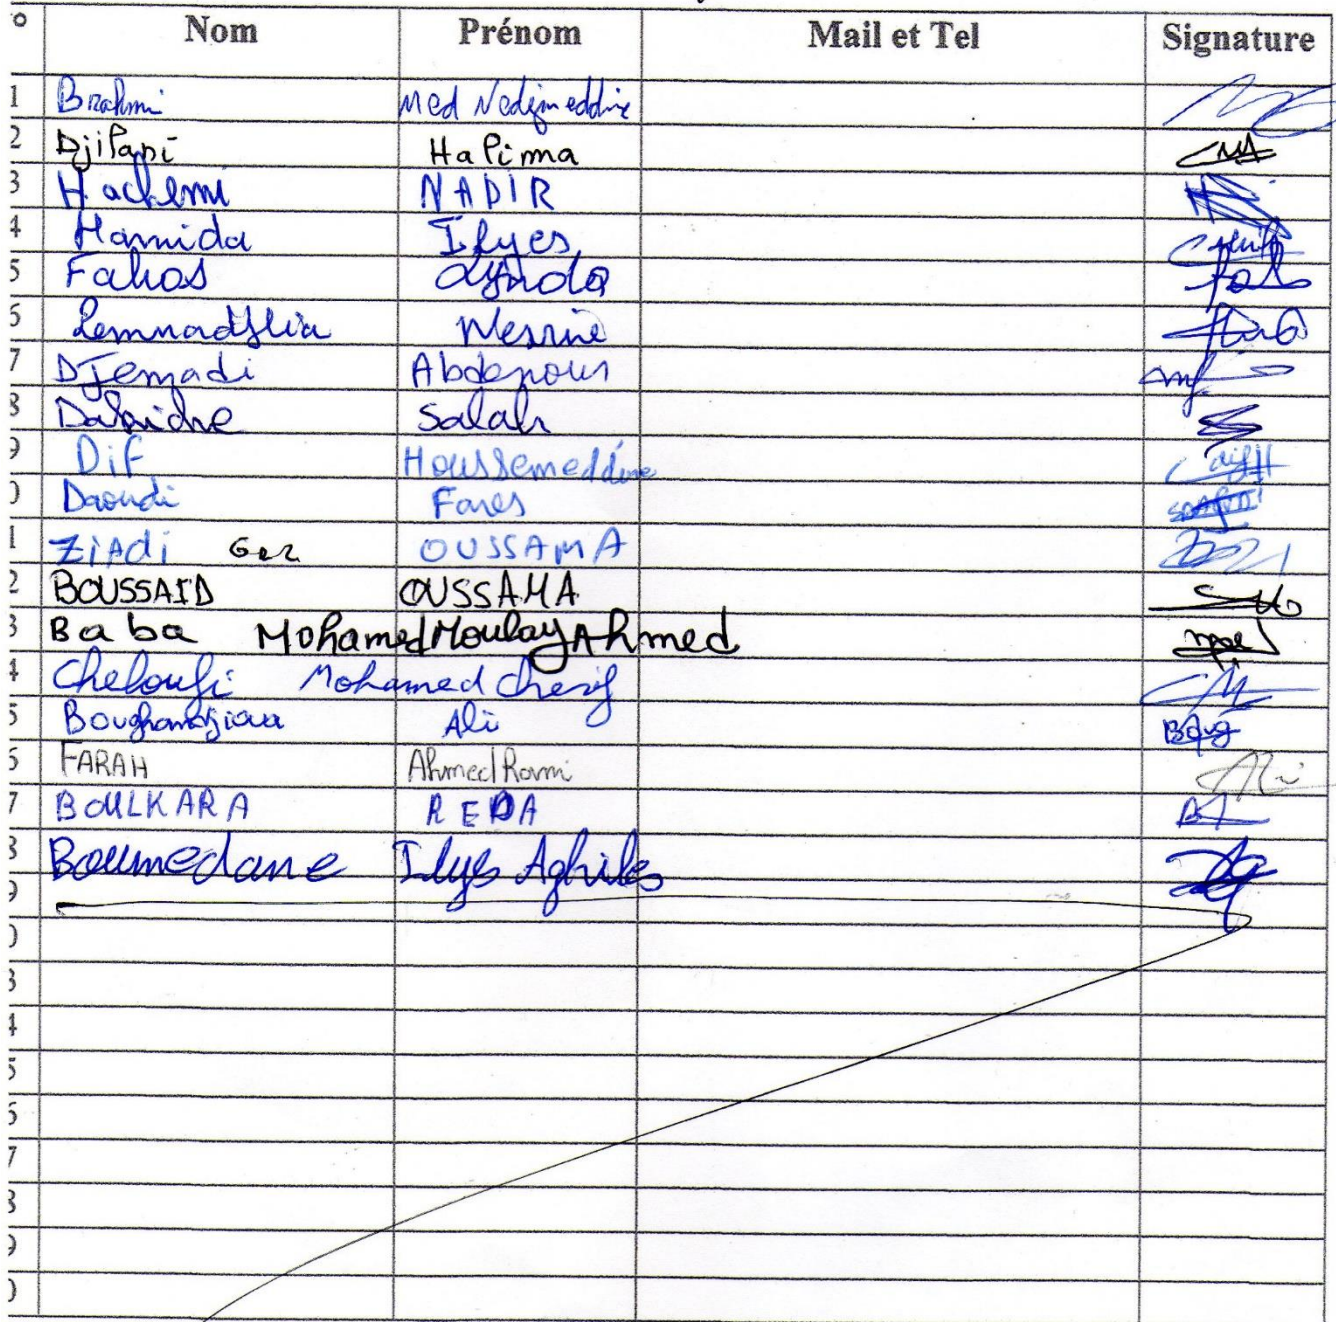 Nom Prénom Mail et Tel Signature
1 Brahmi Med Nedjmeddine
2 Djilani Halima
3 Hachemi NADIR
4 Hamida Ilyes
5 Fahas Lynda
6 Lemnadjlia Nesrine
7 DJemadi Abdenour
8 Dahiche Salah
9 Dif Houssemeddine
0 Daoudi Fares
1 ZiAdi OUSSAMA
2 BOUSSAID OUSSAMA
3 Baba Mohamed Moulay Ahmed
4 Cheloufi Mohamed Cherif
5 Ali
6 FARAH Ahmed Rami
7 BOULKARA REDA
8 Boumedane Ilyes Aghiles
9
0
3
4
5
6
7
8
9
0